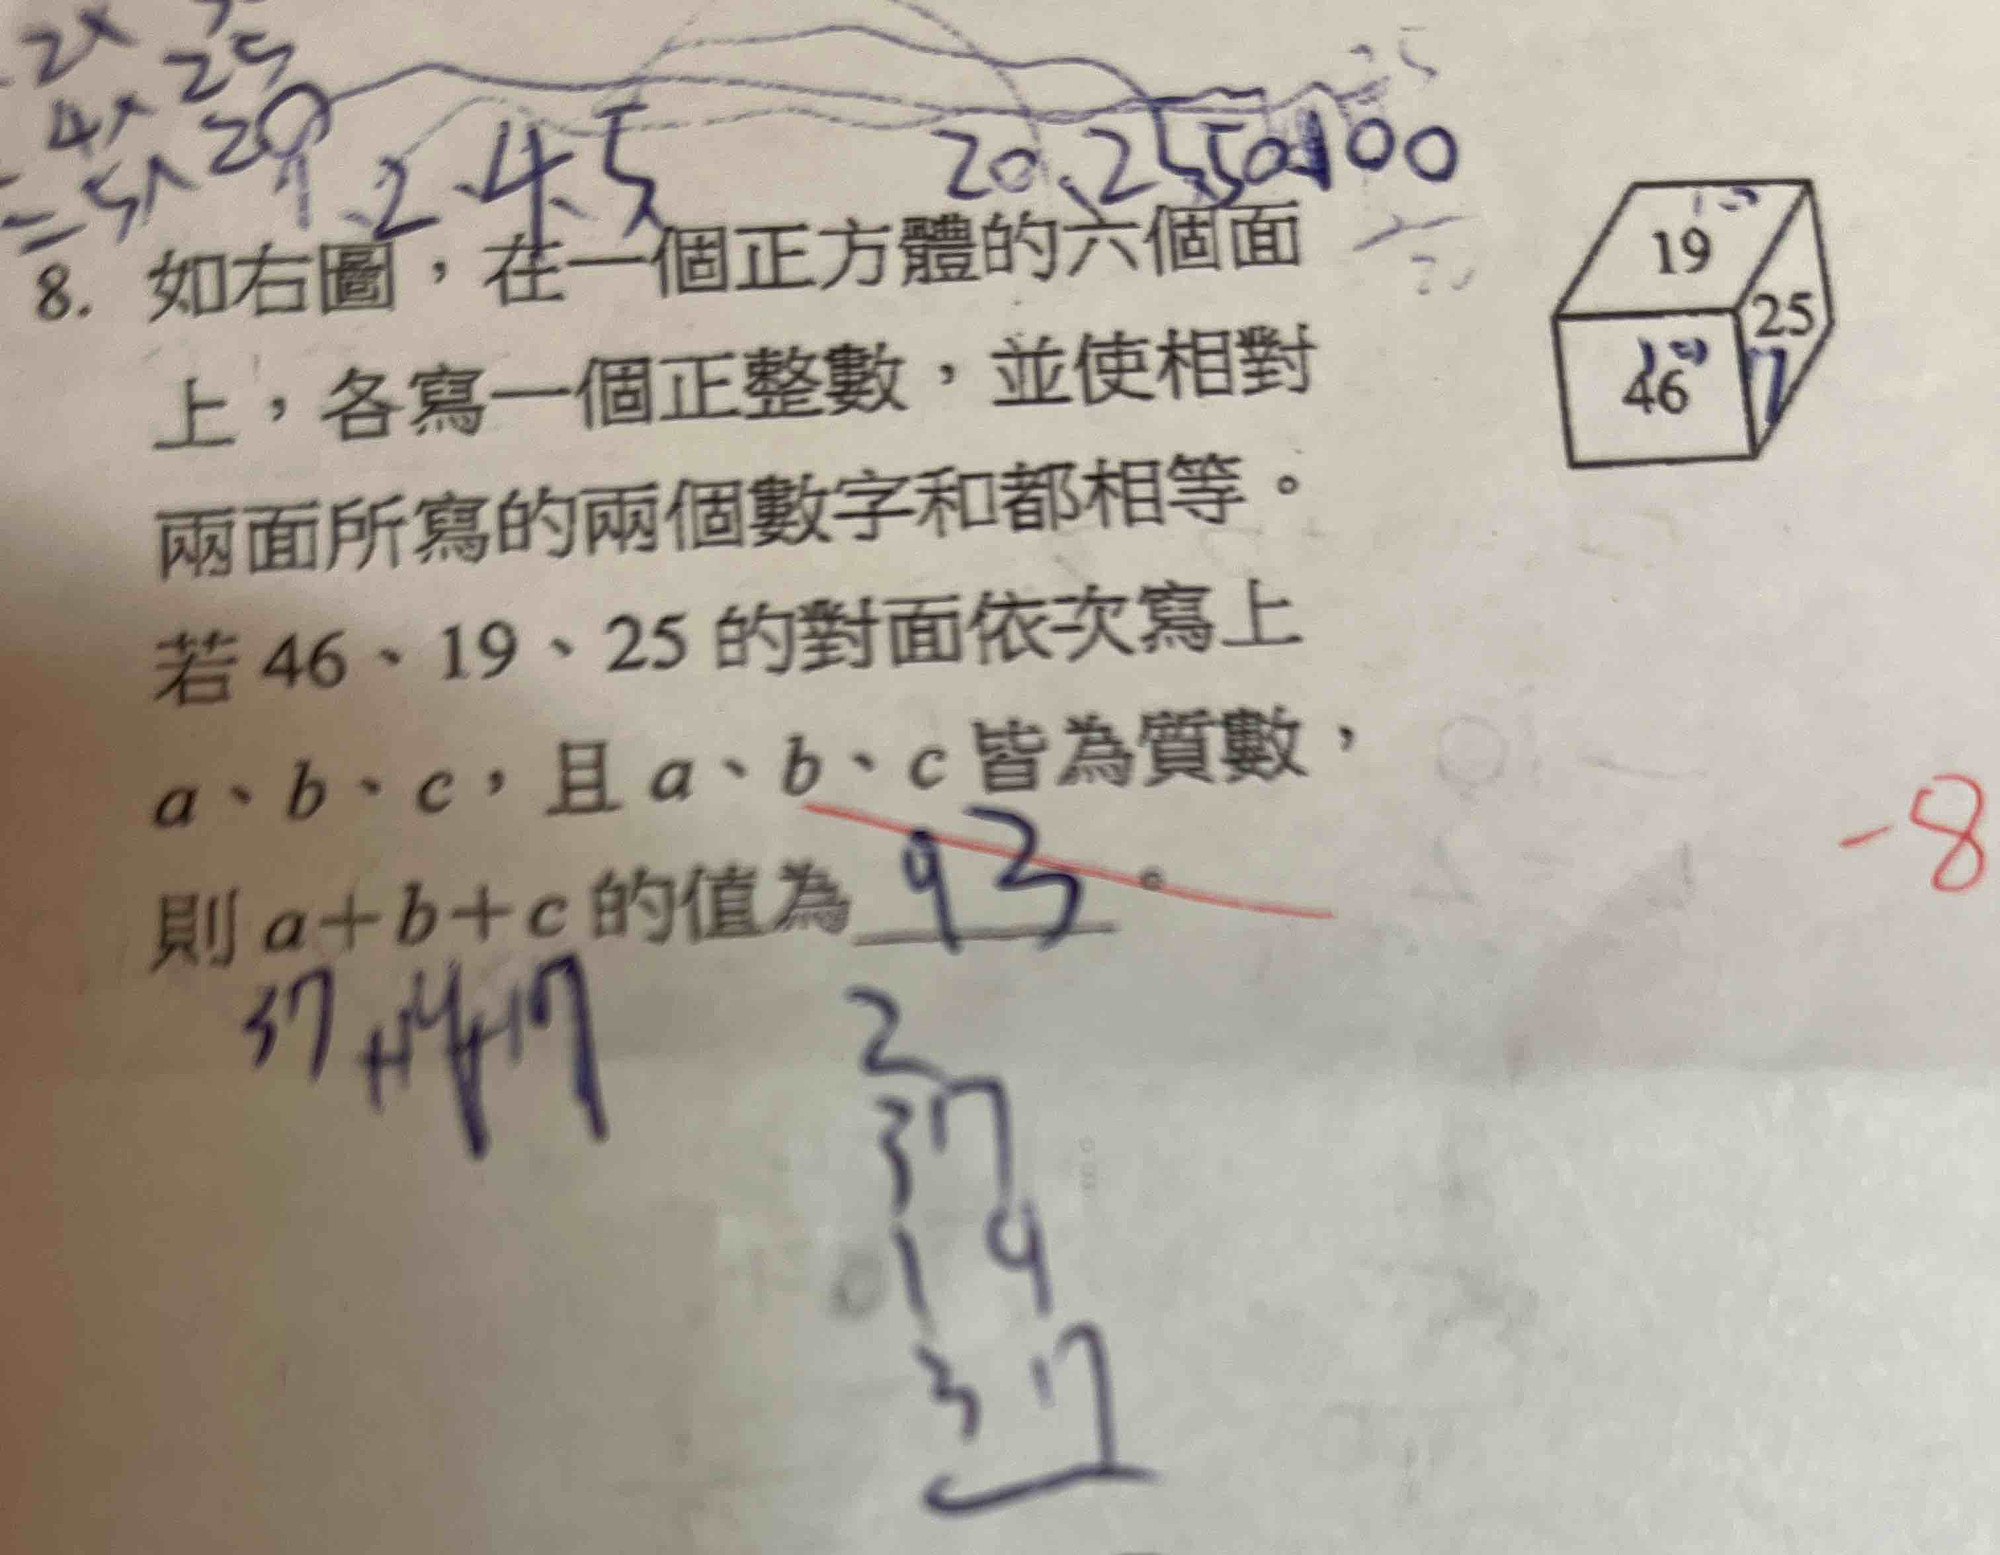 2×
4×25
=5×20
1、2、4、5 20、25、50、100
8. 如右圖，在一個正方體的六個面
上，各寫一個正整數，並使相對
兩面所寫的兩個數字和都相等。
若 46、19、25 的對面依次寫上
a、b、c，且 a、b、c 皆為質數，
則 a+b+c 的值為 93 。
19
25
46
-8
37
2
37
19
37